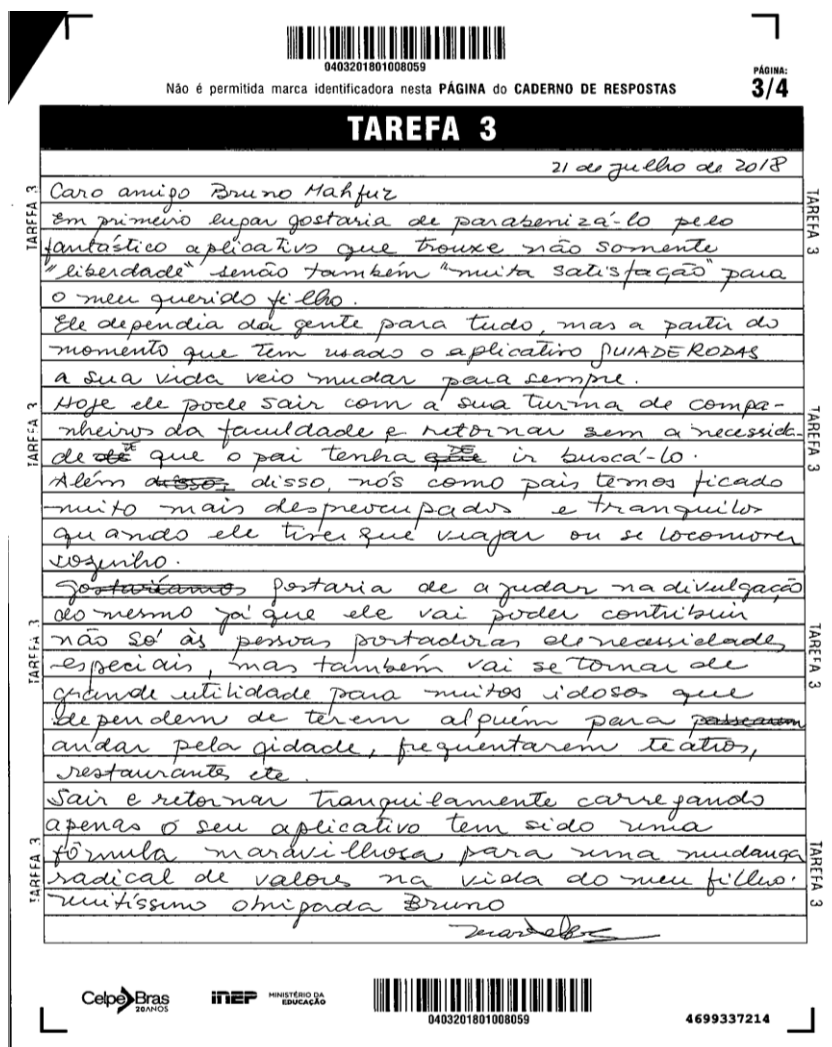 0403201801008059
Não é permitida marca identificadora nesta PÁGINA do CADERNO DE RESPOSTAS
PÁGINA:
3/4
TAREFA 3
21 de julho de 2018
Caro amigo Bruno Mahfuz
Em primeiro lugar gostaria de parabenizá-lo pelo
fantástico aplicativo que trouxe não somente
"liberdade" senão também "muita satisfação" para
o meu querido filho.
Ele dependia da gente para tudo, mas a partir do
momento que tem usado o aplicativo GUIADERODAS
a sua vida veio mudar para sempre.
Hoje ele pode sair com a sua turma de compa-
nheiros da faculdade e retornar sem a necessida-
de de que o pai tenha de ir buscá-lo.
Além disso, disso, nós como pais temos ficado
muito mais despreocupados e tranquilos
quando ele tiver que viajar ou se locomover
sozinho.
Gostaríamos Gostaria de ajudar na divulgação
do mesmo já que ele vai poder contribuir
não só às pessoas portadoras de necessidades
especiais, mas também vai se tornar de
grande utilidade para muitos idosos que
dependem de terem alguém para passearem
andar pela cidade, frequentarem teatros,
restaurantes etc.
Sair e retornar tranquilamente carregando
apenas o seu aplicativo tem sido uma
fórmula maravilhosa para uma mudança
radical de valores na vida do meu filho.
Muitíssimo obrigada Bruno
TAREFA 3
TAREFA 3
TAREFA 3
TAREFA 3
TAREFA 3
TAREFA 3
TAREFA 3
TAREFA 3
CelpeBras
20 ANOS
inep
MINISTÉRIO DA
EDUCAÇÃO
0403201801008059
4699337214